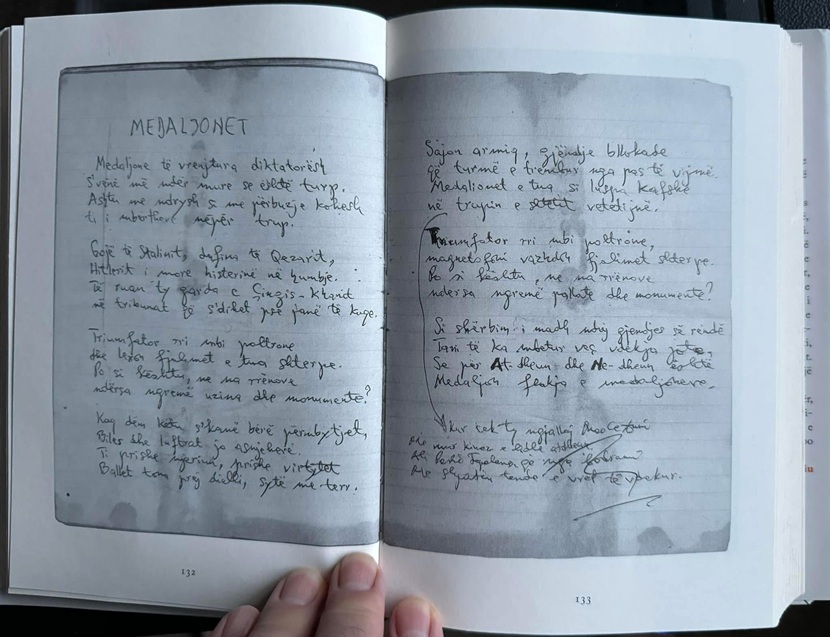 MEDALJONET
Medaljone të vrenjtura diktatorësh
S'vënë më ndër mure se është turp.
Ashtu me ndryshk si me përbuzje kohësh
ti i mbërtheve nëpër trup.
Gojë të Stalinit, dafina të Qezarit,
Hitlerit i more histerinë në humbje.
Të ruan ty garda e Çingis-Khanit
në tribunat që s'dihet pse janë të kuqe.
Triumfator rri mbi poltronë
dhe lexon fjalimet e tua shterpe.
Po si kështu, ne na rrënove
ndërsa ngremë uzina dhe monumente?
Kaq dëm s'kanë bërë përmbytjet,
Biles dhe luftrat jo asnjeherë.
Ti prishe njerinë, prishe virtytet
Ballët tanë prej dielli, sytë me terr.
Sajon armiq, gjendje bllokade
që turmë e trembur nga pas të vijmë.
Medalionet e tua si luspa kafshe
në trupin e vetëtijnë.
Triumfator rri mbi poltronë,
magnetofoni vazhdon fjalimet shterpe.
Po si kështu, ne na rrënove
ndërsa ngremë pallate dhe monumente?
Si shërbim i madh ndaj gjendjes së rëndë
Tani të ka mbetur veç vdekja
Se për At-dheun dhe Ne-dheun është
Medaljon fenkja e medaljoneve.
Kur tek ty ngjallej
Me mur kinez e
Ali Pashë Tepelena
Me shpatën tënde e vret të vpekur.
132
133